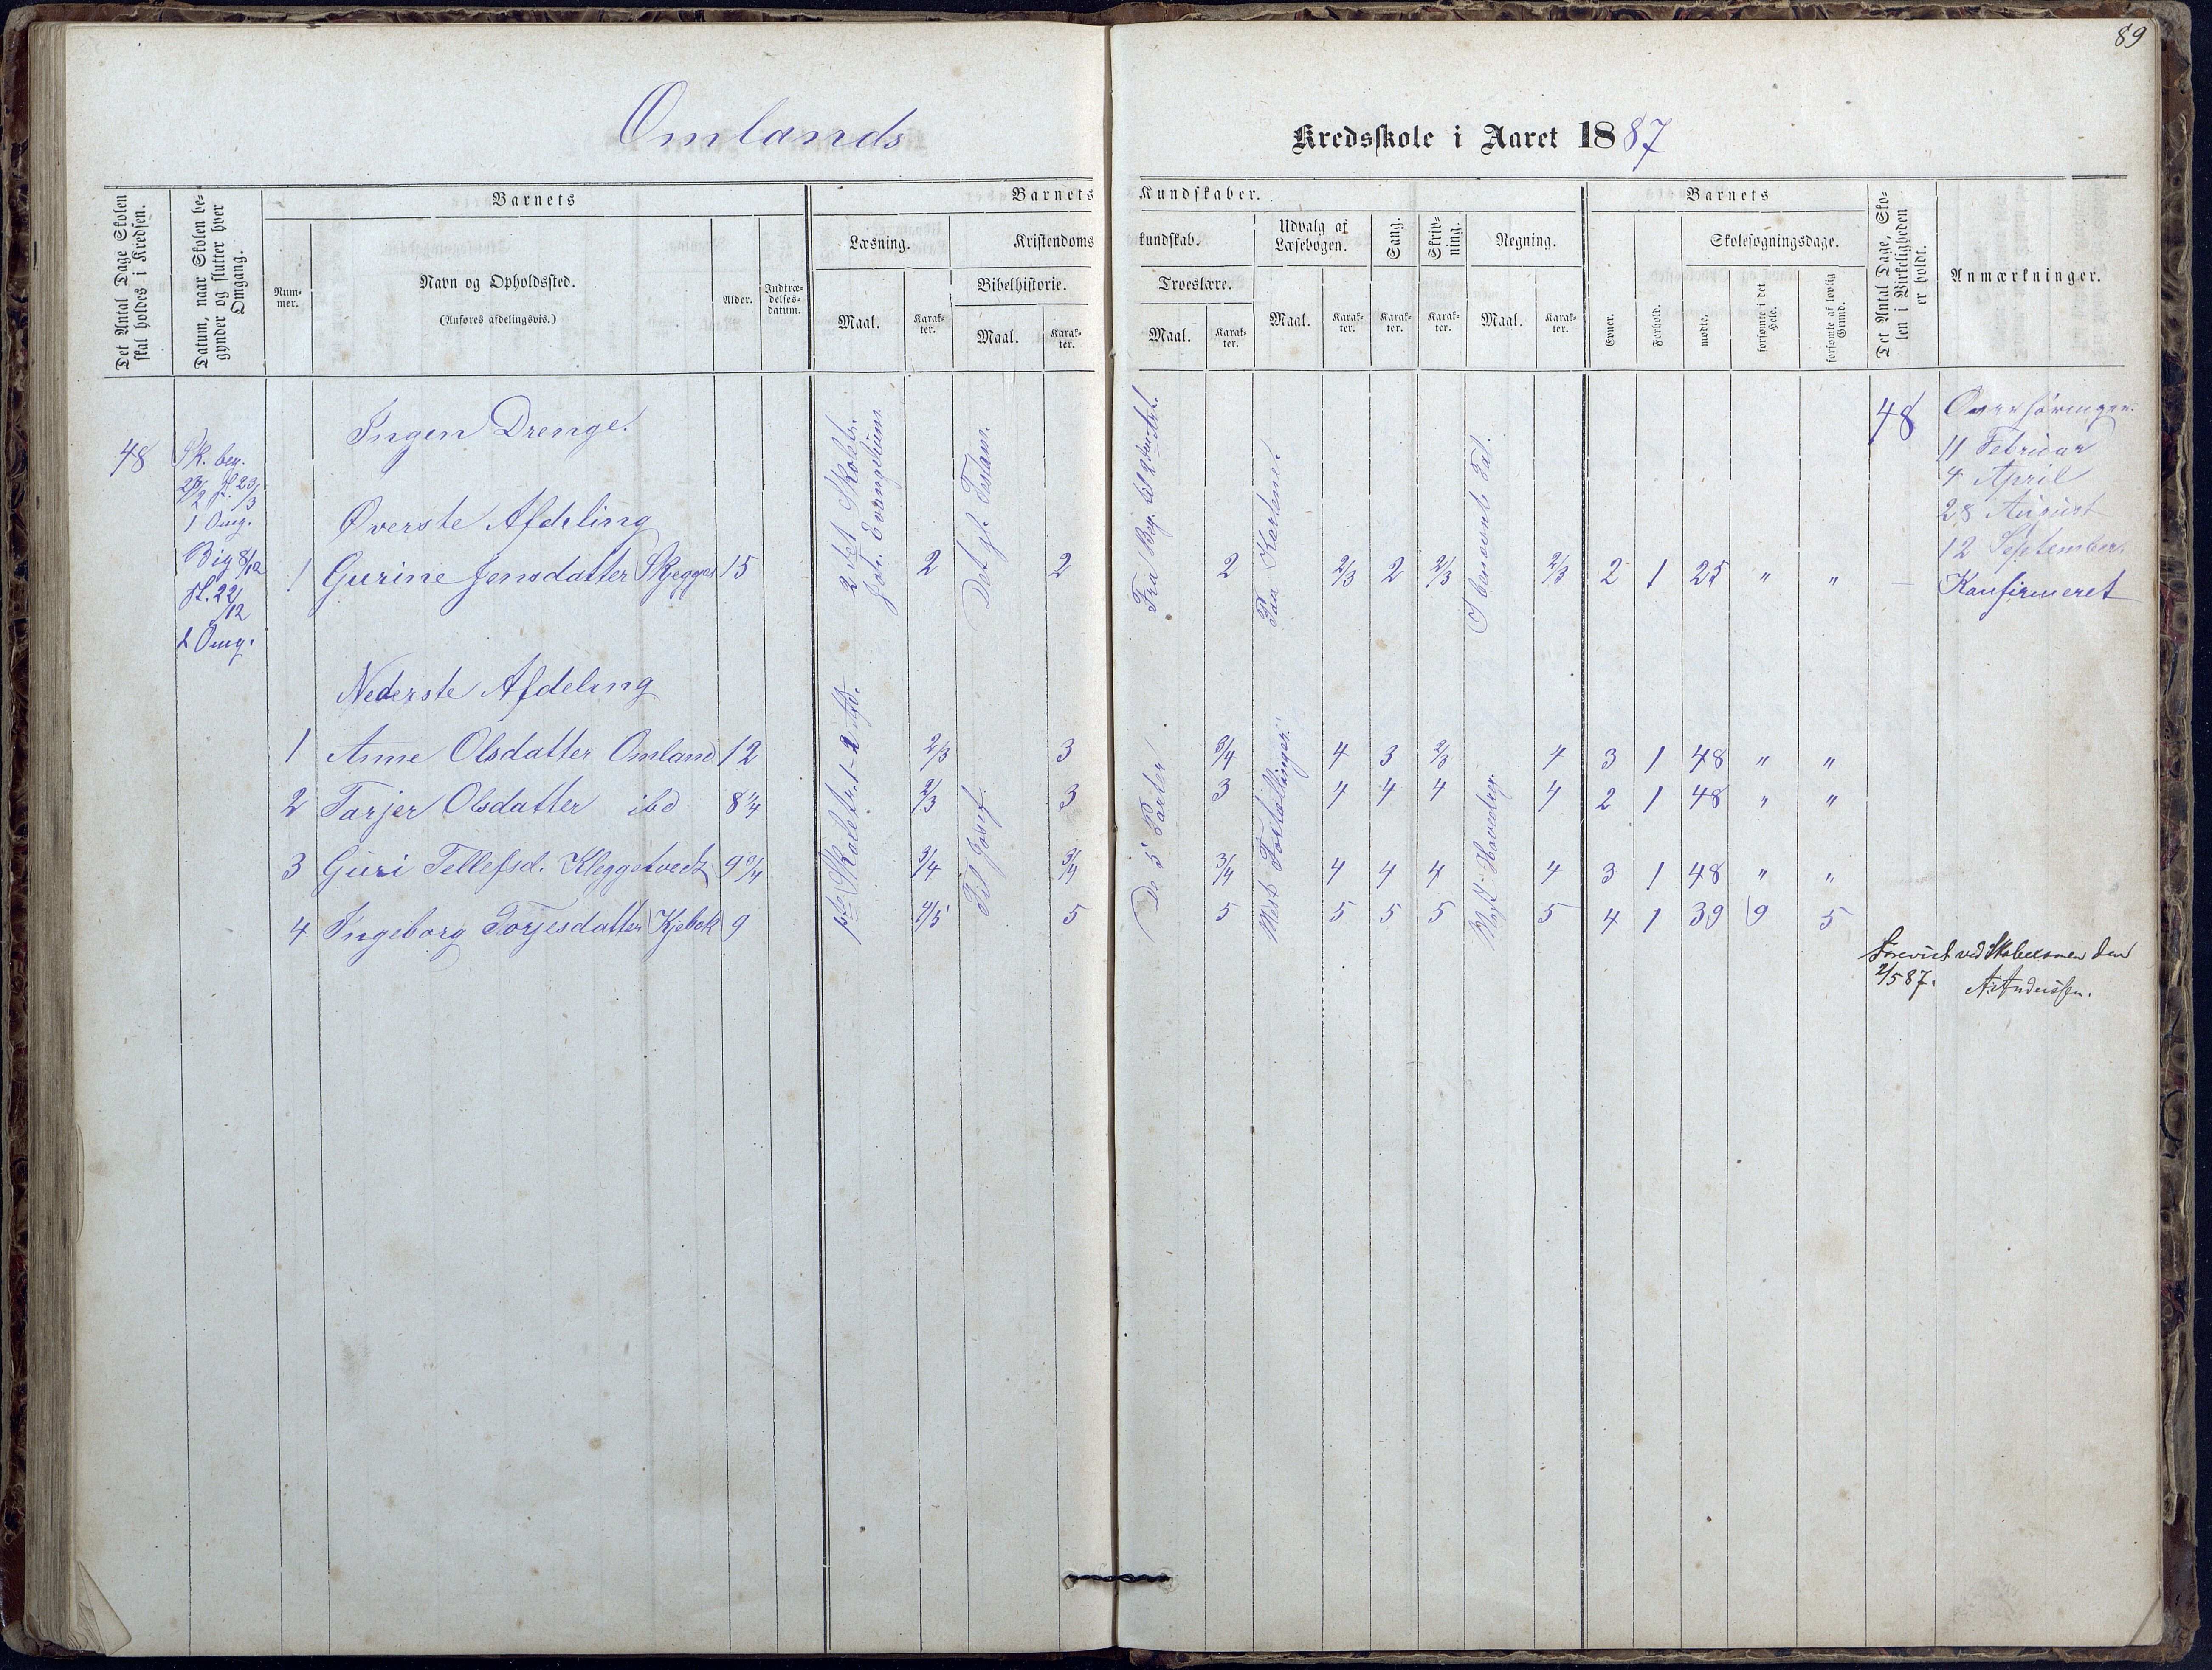 89
Omlands
Kredsskole i Aaret 1887
Det Antal Dage Skolen skal holdes i Kredsen.
Datum, naar Skolen begynder og slutter hver Omgang.
Barnets
Nummer.
Navn og Opholdssted.
(Anføres afdelingsvis.)
Alder.
Indtrædelsesdatum.
Barnets
Kundskaber.
Læsning.
Kristendoms
kundskab.
Maal.
Karakter.
Bibelhistorie.
Maal.
Karakter.
Troeslære.
Maal.
Karakter.
Udvalg af Læsebogen.
Maal.
Karakter.
Sang.
Karakter.
Skrivning.
Karakter.
Regning.
Maal.
Karakter.
Barnets
Evner.
Forhold.
Skolesøgningsdage.
mødte.
forsømte i det Hele.
forsømte af lovlig Grund.
Det Antal Dage, Skolen i Virkeligheden er holdt.
Anmærkninger.
48
Sk. beg.
sl. 23/3
1 Omg.
Big 8/12
sl. 22/12
2 Omg.
Ingen Drenge.
Øverste Afdeling
1 Gurine Jensdatter Skjegges 15 2 2 2 2/3 2 2/3 2/3 2 1 25 " "
2det Skoletr.
Joh. Evangelium
Det gl. Testam.
Fra Beg. til
Paa Kartenet
I benævnte Tal.
48
Overhøringer.
11 Februar
4 April
28 August
12 September
Konfirmeret
Nederste Afdeling
1 Anne Olsdatter Omland 12 2/3 3 3/4 4 3 2/3 4 3 1 48 " "
2 Tarjer Olsdatter ibd 8 1/4 2/3 3 3 4 4 4 4 2 1 48 " "
3 Guri Tellefsd. Kleggetvedt 9 3/4 3/4 3/4 3/4 4 4 4 4 3 1 48 " "
4 Ingeborg Torjesdatter Kjebek 9 4/5 5 5 5 5 5 5 4 1 39 9 5
1ste Skoletr. 1-2 Afd.
Til Josef.
De 5 Parter
Mest Fortællinger.
Forevist ved Skoleexamen den
2/5 87. A. Anderssen.